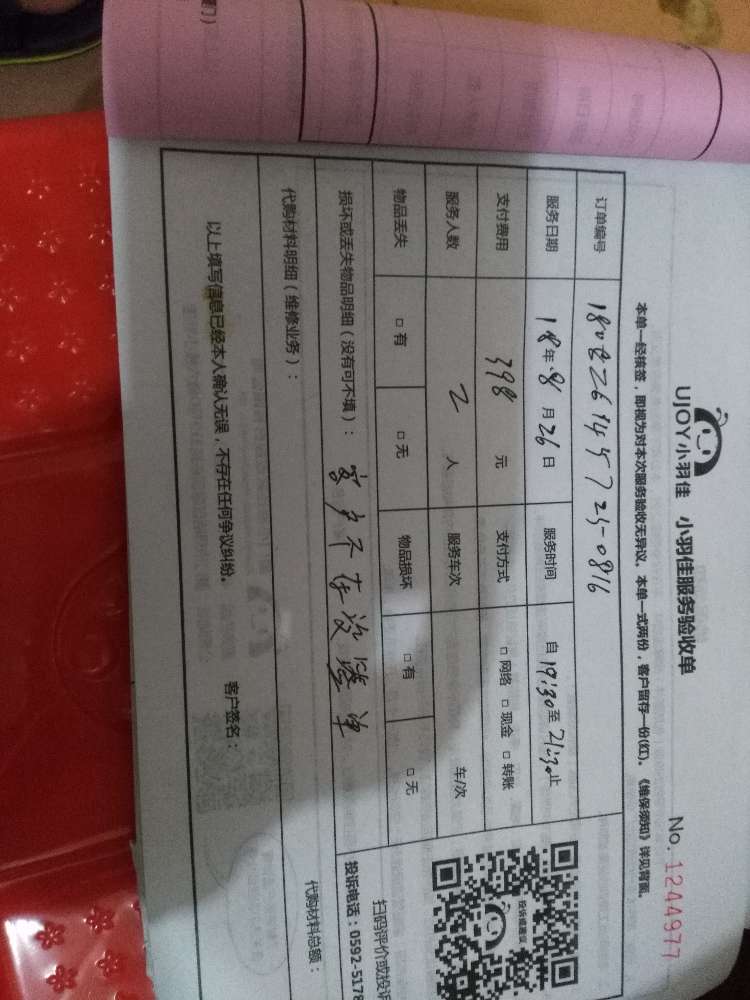 UJOY小羽佳 小羽佳服务验收单
No. 1244977
本单一经核签，即视为对本次服务验收无异议。本单一式两份，客户留存一份(红)。《维保须知》详见背面。
订单编号 180826145725-0816
服务日期 18年 8月 26日 服务时间 自 19:30 至 21:30 止
支付费用 398 元 支付方式 □ 网络 □ 现金 □ 转账
服务人数 2 人 服务车次 车/次
物品丢失 □ 有 □ 无 物品损坏 □ 有 □ 无
损坏或丢失物品明细（没有可不填）：客户不在没签单
代购材料明细（维修业务）：
代购材料总额：
以上填写信息已经本人确认无误，不存在任何争议纠纷。 客户签名：
投诉或建议
扫码评价或投诉
投诉电话：0592-5178